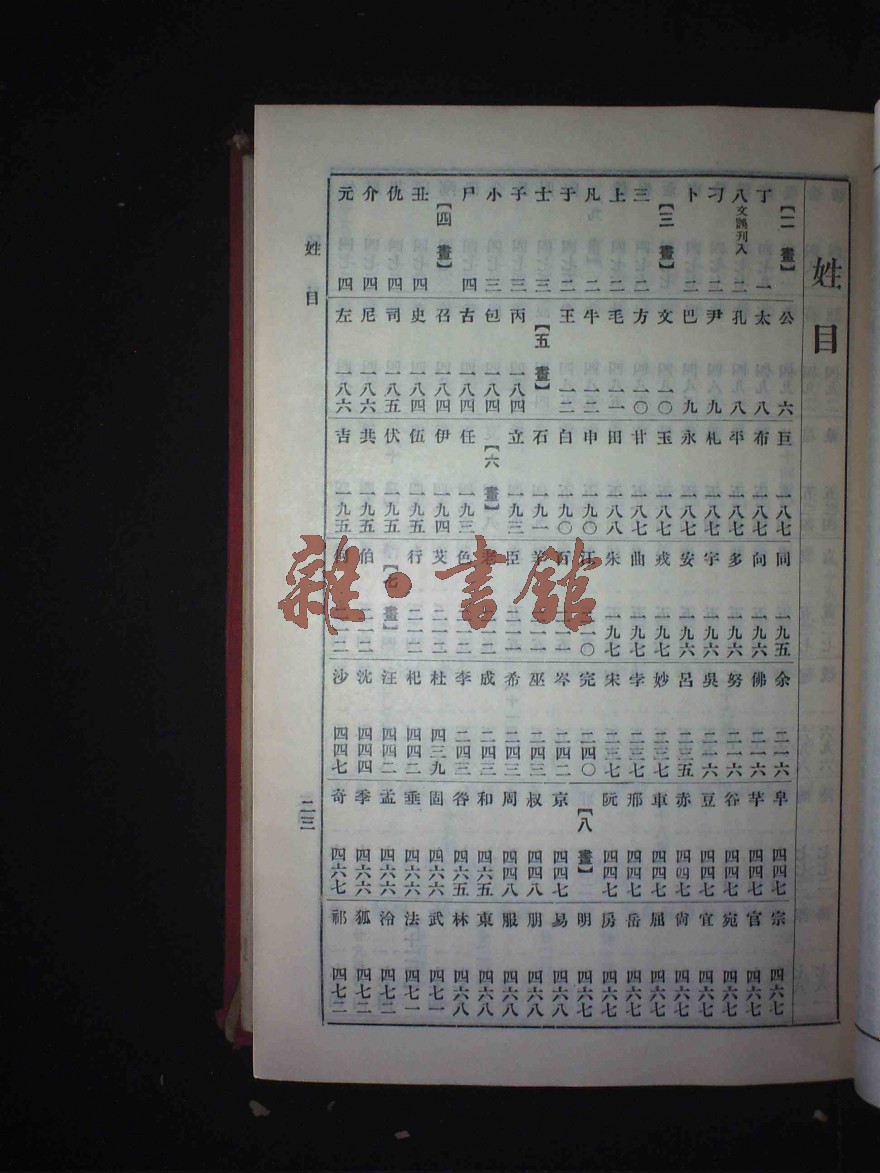 姓目
【二畫】
丁 一
八文誤刊入 二
刁 二
卜 二
【三畫】
三 二
上 二
凡 二
于 二
士 三
子 三
小 三
尸 四
【四畫】
丑 四
仇 四
介 四
元 四
公 六
太 八
孔 八
尹 九
巴 九
文 一〇
方 一〇
毛 一一
牛 一二
王 一二
【五畫】
丙 一八四
包 一八四
古 一八四
召 一八四
史 一八四
司 一八五
尼 一八六
左 一八六
巨 一八七
布 一八七
平 一八七
札 一八七
永 一八七
玉 一八七
甘 一八七
田 一八八
申 一九〇
白 一九〇
石 一九一
立 一九三
【六畫】
任 一九三
伊 一九四
伍 一九五
伏 一九五
共 一九五
吉 一九五
同 一九五
向 一九六
多 一九六
宇 一九六
安 一九六
戎 一九七
曲 一九七
朱 一九七
江 二一〇
百 二一一
羊 二一一
臣 二一一
老 二一二
色 二一二
艾 二一二
行 二一二
【七畫】
伯 二一二
何 二一二
余 二一六
佛 二一六
努 二一六
吳 二一六
呂 二三五
妙 二三七
孛 二三七
宋 二三七
完 二四〇
岑 二四二
巫 二四三
希 二四三
成 二四三
李 二四三
杜 四三九
杞 四四二
汪 四四二
沈 四四四
沙 四四七
皁 四四七
芊 四四七
谷 四四七
豆 四四七
赤 四四七
車 四四七
邢 四四七
阮 四四七
【八畫】
京 四四七
叔 四四八
周 四四八
和 四六五
咎 四六五
固 四六六
垂 四六六
孟 四六六
季 四六六
奇 四六七
宗 四六七
官 四六七
宛 四六七
宜 四六七
尙 四六七
屈 四六七
岳 四六七
房 四六七
明 四六七
易 四六八
朋 四六八
服 四六八
東 四六八
林 四六八
武 四七一
法 四七一
泠 四七二
狐 四七二
祁 四七二
姓目
二三
雜·書館